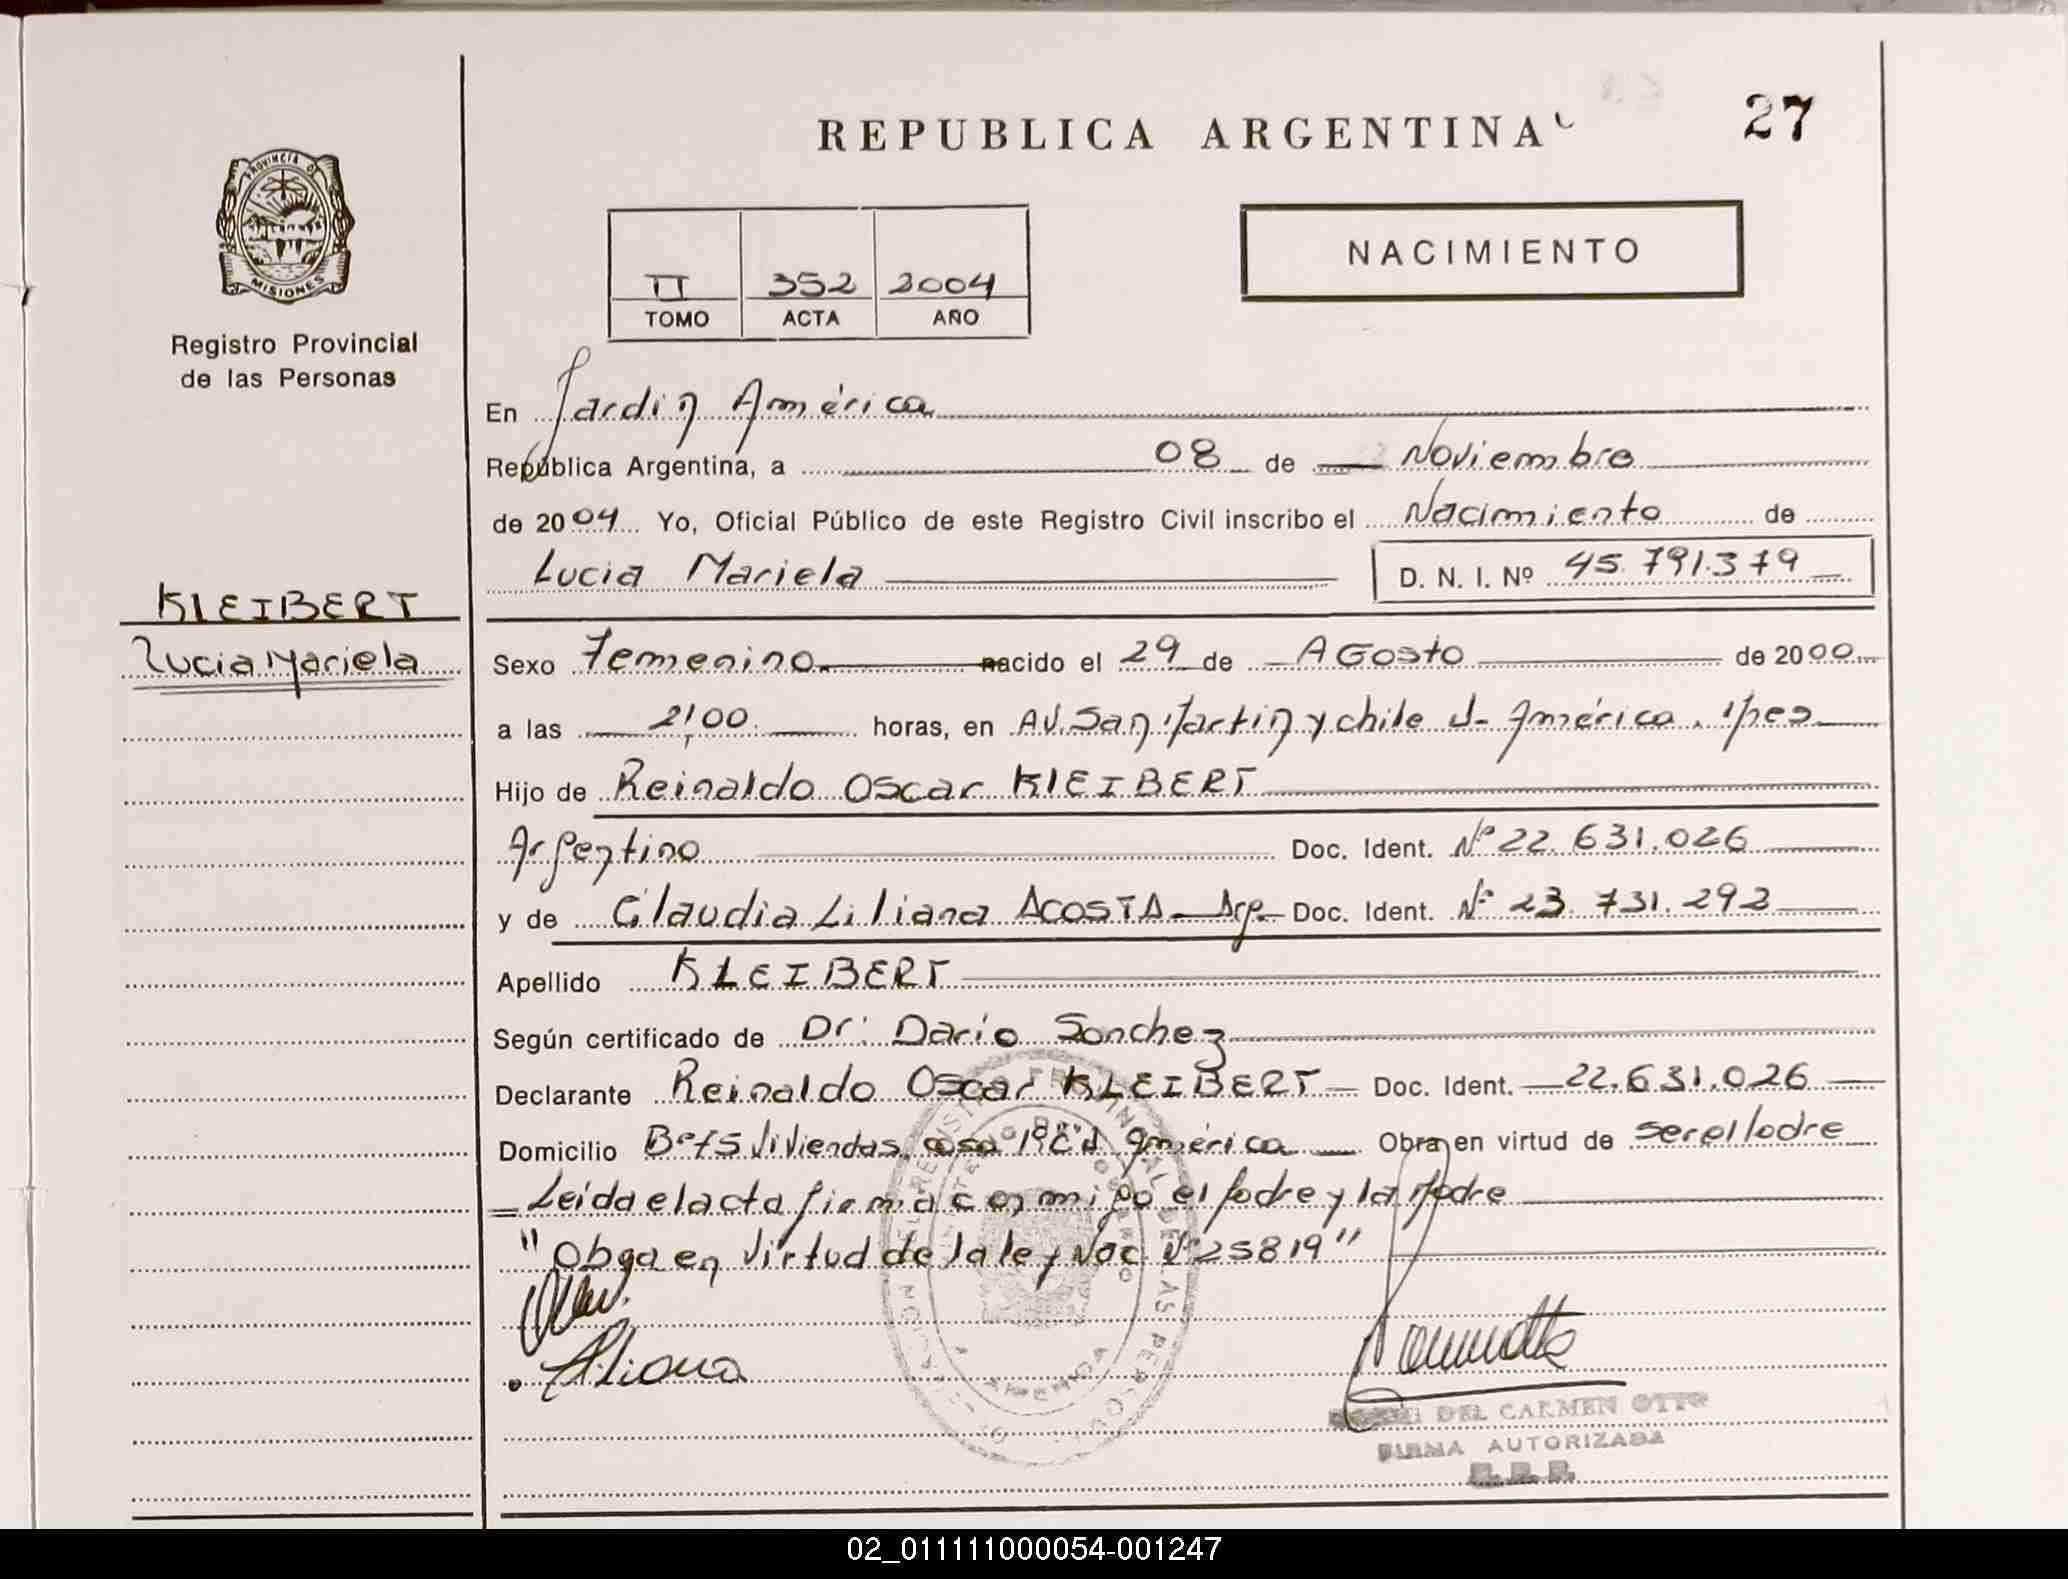 REPUBLICA ARGENTINA
27
PROVINCIA DE
MISIONES
Registro Provincial
de las Personas
II 352 2004
TOMO ACTA AÑO
NACIMIENTO
En Jardín América
República Argentina, a 08 de Noviembre
de 2004 Yo, Oficial Público de este Registro Civil inscribo el Nacimiento de
Lucia Mariela D. N. I. Nº 45.791.379
KLEIBERT
Lucia Mariela
Sexo Femenino nacido el 29 de AGosto de 2000
a las 21,00 horas, en AV. San Martin y chile J- América. Mnes
Hijo de Reinaldo Oscar KlEIBERT
Argentino Doc. Ident. Nº 22.631.026
y de Claudia Liliana ACOSTA - Arg. Doc. Ident. Nº 23.731.292
Apellido KLEIBERT
Según certificado de Dr: Dario Sanchez
Declarante Reinaldo Oscar KLEIBERT - Doc. Ident. 22.631.026
Domicilio Bº 75 Viviendas, casa América Obra en virtud de ser el Padre
Leida el acta firma conmigo el Padre y la Madre
"Obra en virtud de la ley Nac. Nº 25819"
Liliana
DEL CARMEN OTTO
FIRMA AUTORIZADA
02_011111000054-001247